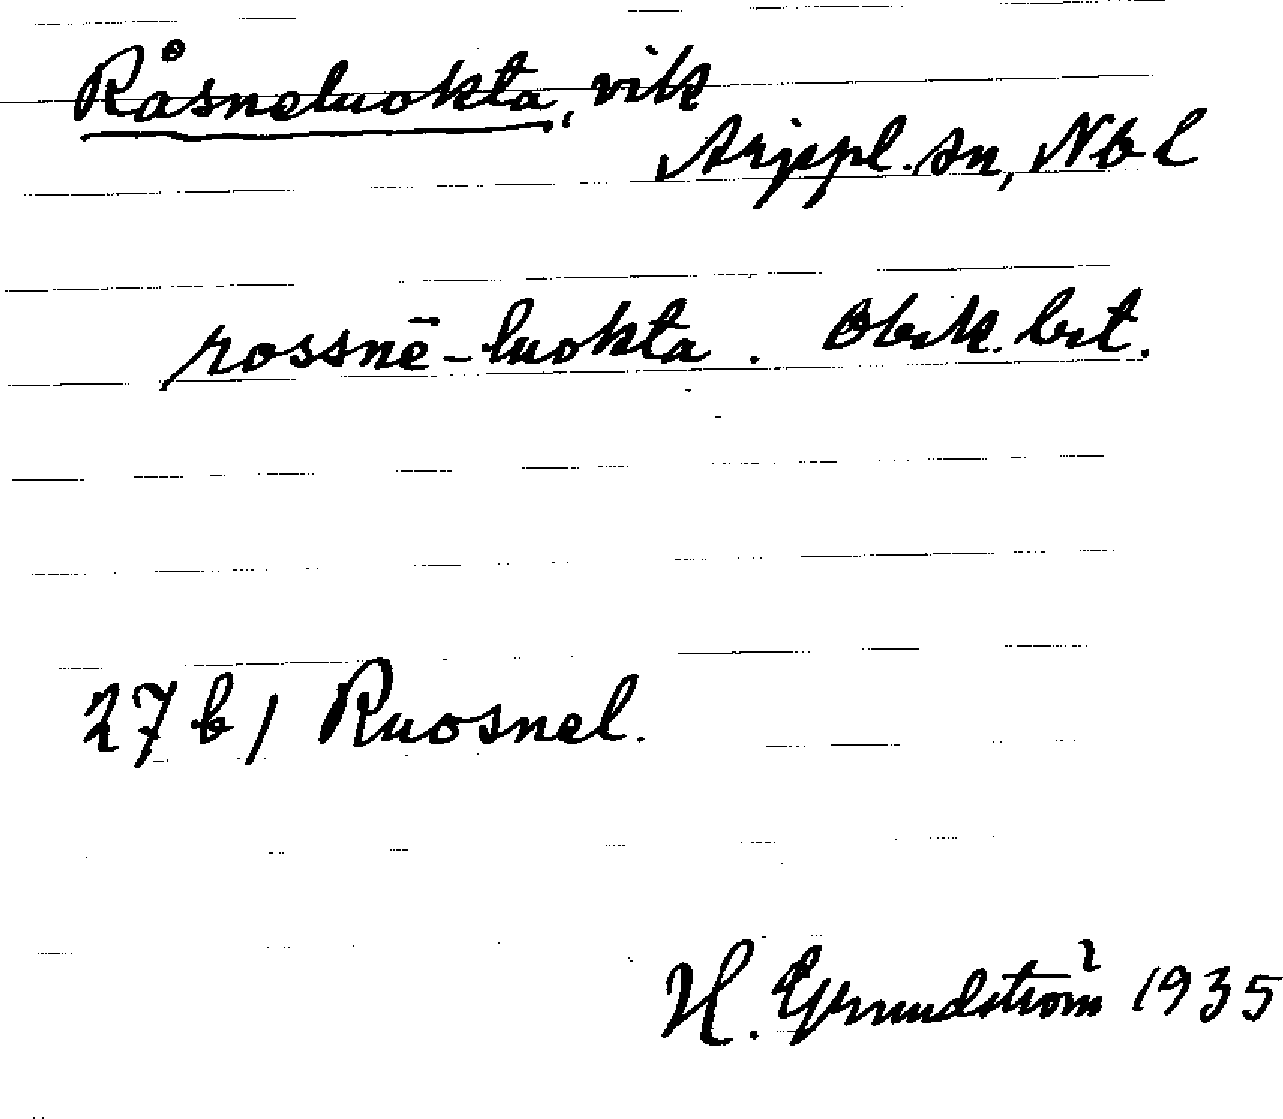 Råsneluokta, vik
Arjepl. sn, Nbl
rossnē-luokta. Obek. bet.
27 b / Ruosnel.
H. Grundström 1935